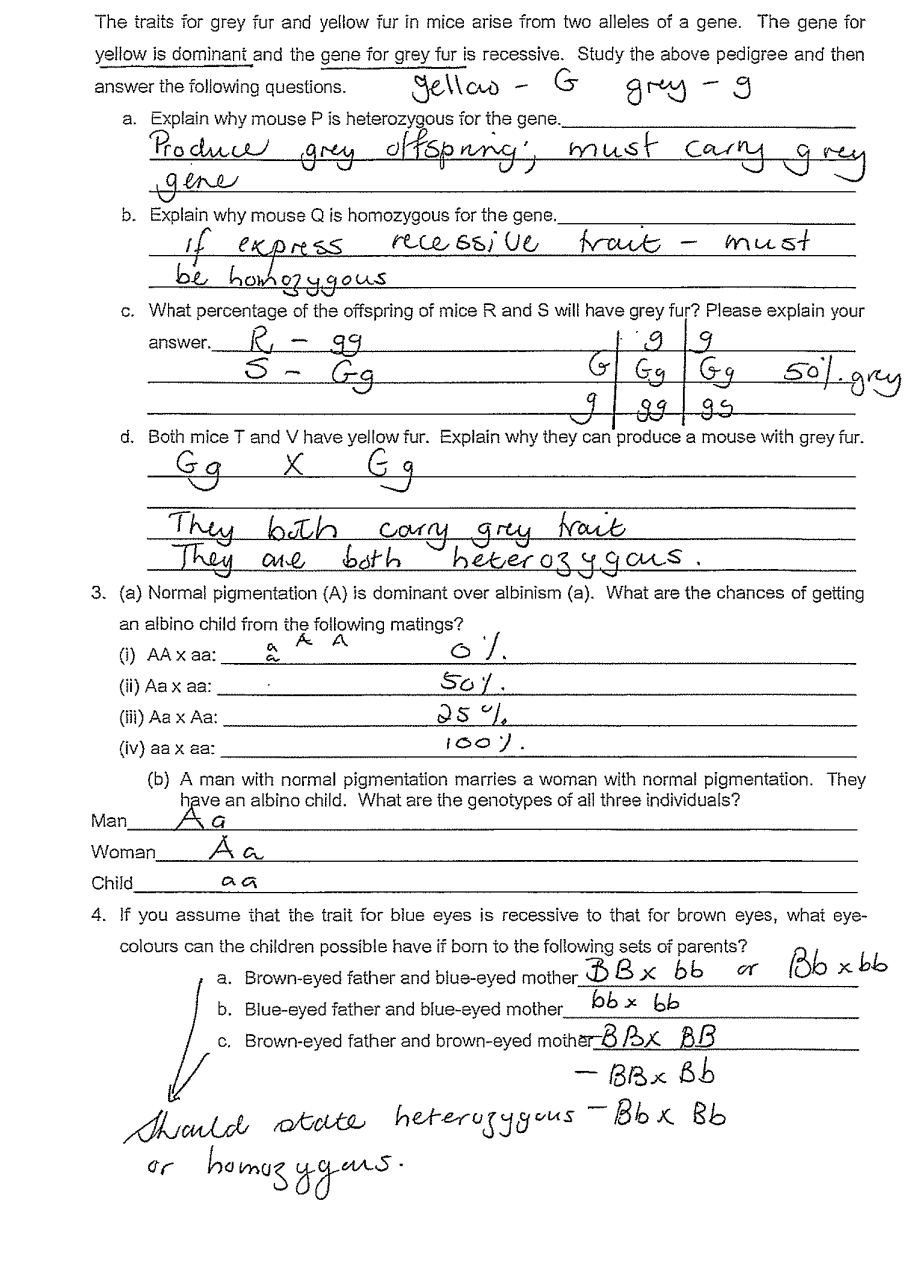 The traits for grey fur and yellow fur in mice arise from two alleles of a gene. The gene for
yellow is dominant and the gene for grey fur is recessive. Study the above pedigree and then
answer the following questions. yellow - G grey - g
a. Explain why mouse P is heterozygous for the gene.
Produce grey offspring; must carry grey
gene
b. Explain why mouse Q is homozygous for the gene.
if express recessive trait - must
be homozygous
c. What percentage of the offspring of mice R and S will have grey fur? Please explain your
answer. R - gg g g
S - Gg G Gg Gg 50%. grey
g gg gg
d. Both mice T and V have yellow fur. Explain why they can produce a mouse with grey fur.
Gg X Gg
They both carry grey trait
They are both heterozygous.
3. (a) Normal pigmentation (A) is dominant over albinism (a). What are the chances of getting
an albino child from the following matings?
(i) AA x aa: a a A A 0%.
(ii) Aa x aa: 50%.
(iii) Aa x Aa: 25%.
(iv) aa x aa: 100%.
(b) A man with normal pigmentation marries a woman with normal pigmentation. They
have an albino child. What are the genotypes of all three individuals?
Man Aa
Woman Aa
Child aa
4. If you assume that the trait for blue eyes is recessive to that for brown eyes, what eye-
colours can the children possible have if born to the following sets of parents?
a. Brown-eyed father and blue-eyed mother BB x bb or Bb x bb
b. Blue-eyed father and blue-eyed mother bb x bb
c. Brown-eyed father and brown-eyed mother BB x BB
- BB x Bb
Should state heterozygous - Bb x Bb
or homozygous.